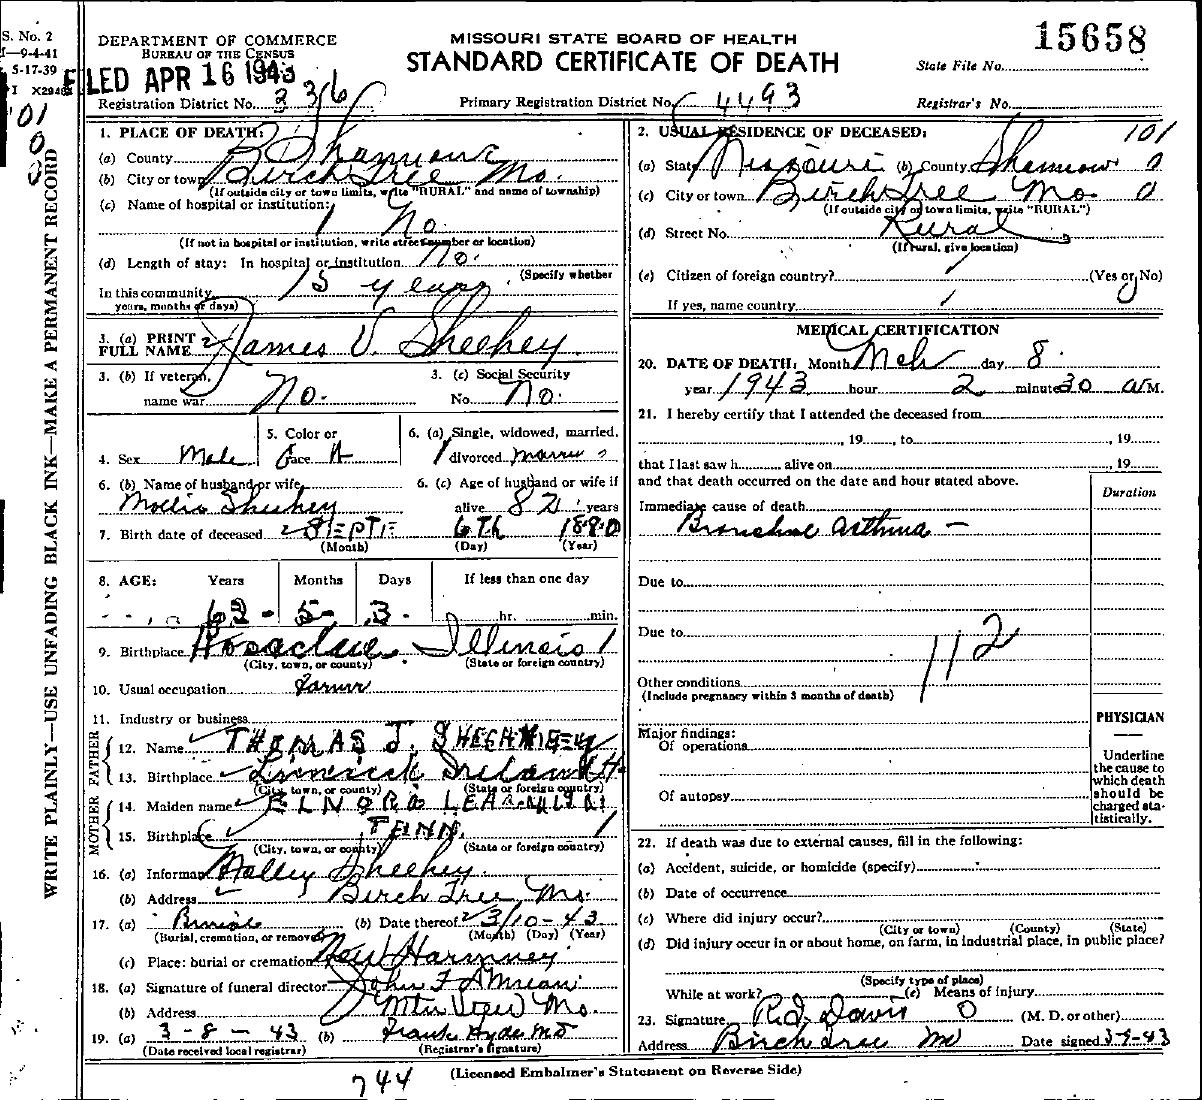 S. No. 2
I—9-4-41
5-17-39
I X2946
DEPARTMENT OF COMMERCE
BUREAU OF THE CENSUS
MISSOURI STATE BOARD OF HEALTH
STANDARD CERTIFICATE OF DEATH
15658
State File No.
FILED APR 16 1943
Registration District No. 336
Primary Registration District No. 4493
Registrar's No.
WRITE PLAINLY—USE UNFADING BLACK INK—MAKE A PERMANENT RECORD
101
0
0
1. PLACE OF DEATH:
(a) County Shannon
(b) City or town Birch Tree Mo.
(If outside city or town limits, write "RURAL" and name of township)
(c) Name of hospital or institution:
No.
(If not in hospital or institution, write street number or location)
(d) Length of stay: In hospital or institution No.
(Specify whether
In this community 15 years
years, months or days)
3. (a) PRINT FULL NAME James V. Sheehey
3. (b) If veteran, name war No.
3. (c) Social Security No. No.
4. Sex Male
5. Color or race
6. (a) Single, widowed, married, divorced
6. (b) Name of husband or wife Mollie Sheehey
6. (c) Age of husband or wife if alive years
7. Birth date of deceased SEPTE 6th 1880
(Month) (Day) (Year)
8. AGE: Years Months Days If less than one day
62 - 5 - 3 - hr. min.
9. Birthplace Illinois
(City, town, or county) (State or foreign country)
10. Usual occupation Farmer
11. Industry or business
FATHER
12. Name THOMAS J.
13. Birthplace Ireland
(City, town, or county) (State or foreign country)
MOTHER
14. Maiden name ELNORA
15. Birthplace TENN.
(City, town, or county) (State or foreign country)
16. (a) Informant Molley Sheehey
(b) Address Birch Tree Mo.
17. (a) Burial (b) Date thereof 3/10-43
(Burial, cremation, or removal) (Month) (Day) (Year)
(c) Place: burial or cremation New Harmoney
18. (a) Signature of funeral director John F
(b) Address Mtn View Mo.
19. (a) 3-8-43 (b) Frank Hyde MD
(Date received local registrar) (Registrar's signature)
2. USUAL RESIDENCE OF DECEASED: 101
(a) State Missouri (b) County Shannon 0
(c) City or town Birch Tree Mo 0
(If outside city or town limits, write "RURAL")
(d) Street No. Rural
(If rural, give location)
(e) Citizen of foreign country? (Yes or No)
If yes, name country
MEDICAL CERTIFICATION
20. DATE OF DEATH: Month Mch day 8
year 1943 hour 2 minute 30 a M.
21. I hereby certify that I attended the deceased from
, 19 , to , 19
that I last saw h alive on , 19
and that death occurred on the date and hour stated above.
Duration
Immediate cause of death
Bronchial asthma —
Due to
Due to
112
Other conditions
(Include pregnancy within 3 months of death)
Major findings:
Of operations
Of autopsy
PHYSICIAN
Underline
the cause to
which death
should be
charged sta-
tistically.
22. If death was due to external causes, fill in the following:
(a) Accident, suicide, or homicide (specify)
(b) Date of occurrence
(c) Where did injury occur?
(City or town) (County) (State)
(d) Did injury occur in or about home, on farm, in industrial place, in public place?
(Specify type of place)
While at work? (e) Means of injury
23. Signature R. J. Davis (M. D. or other)
Address Birch Tree Mo Date signed 3-9-43
744
(Licensed Embalmer's Statement on Reverse Side)